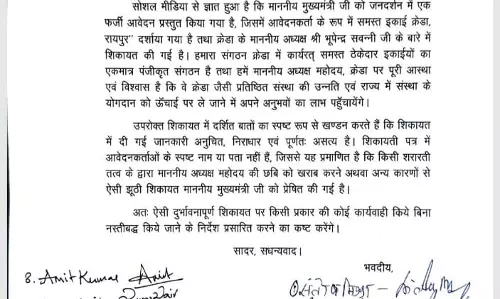 सोशल मीडिया से ज्ञात हुआ है कि माननीय मुख्यमंत्री जी को जनदर्शन में एक
फर्जी आवेदन प्रस्तुत किया गया है, जिसमें आवेदनकर्ता के रूप में समस्त इकाई क्रेडा,
रायपुर" दर्शाया गया है तथा क्रेडा के माननीय अध्यक्ष श्री भूपेन्द्र सवन्नी जी के बारे में
शिकायत की गई है। हमारा संगठन क्रेडा में कार्यरत् समस्त ठेकेदार इकाईयों का
एकमात्र पंजीकृत संगठन है तथा हमें माननीय अध्यक्ष महोदय, क्रेडा पर पूरी आस्था
एवं विश्वास है कि वे क्रेडा जैसी प्रतिष्ठित संस्था की उन्नति एवं राज्य में संस्था के
योगदान को ऊँचाई पर ले जाने में अपने अनुभवों का लाभ पहुँचायेंगे।
उपरोक्त शिकायत में दर्शित बातों का स्पष्ट रूप से खण्डन करते हैं कि शिकायत
में दी गई जानकारी अनुचित, निराधार एवं पूर्णतः असत्य है। शिकायती पत्र में
आवेदनकर्ताओं के स्पष्ट नाम या पता नहीं हैं, जिससे यह प्रमाणित है कि किसी शरारती
तत्व के द्वारा माननीय अध्यक्ष महोदय की छबि को खराब करने अथवा अन्य कारणों से
ऐसी झूठी शिकायत माननीय मुख्यमंत्री जी को प्रेषित की गई है।
अतः ऐसी दुर्भावनापूर्ण शिकायत पर किसी प्रकार की कोई कार्यवाही किये बिना
नस्तीबद्ध किये जाने के निर्देश प्रसारित करने का कष्ट करेंगे।
सादर, सधन्यवाद।
भवदीय,
8. Amit Kumar Amit